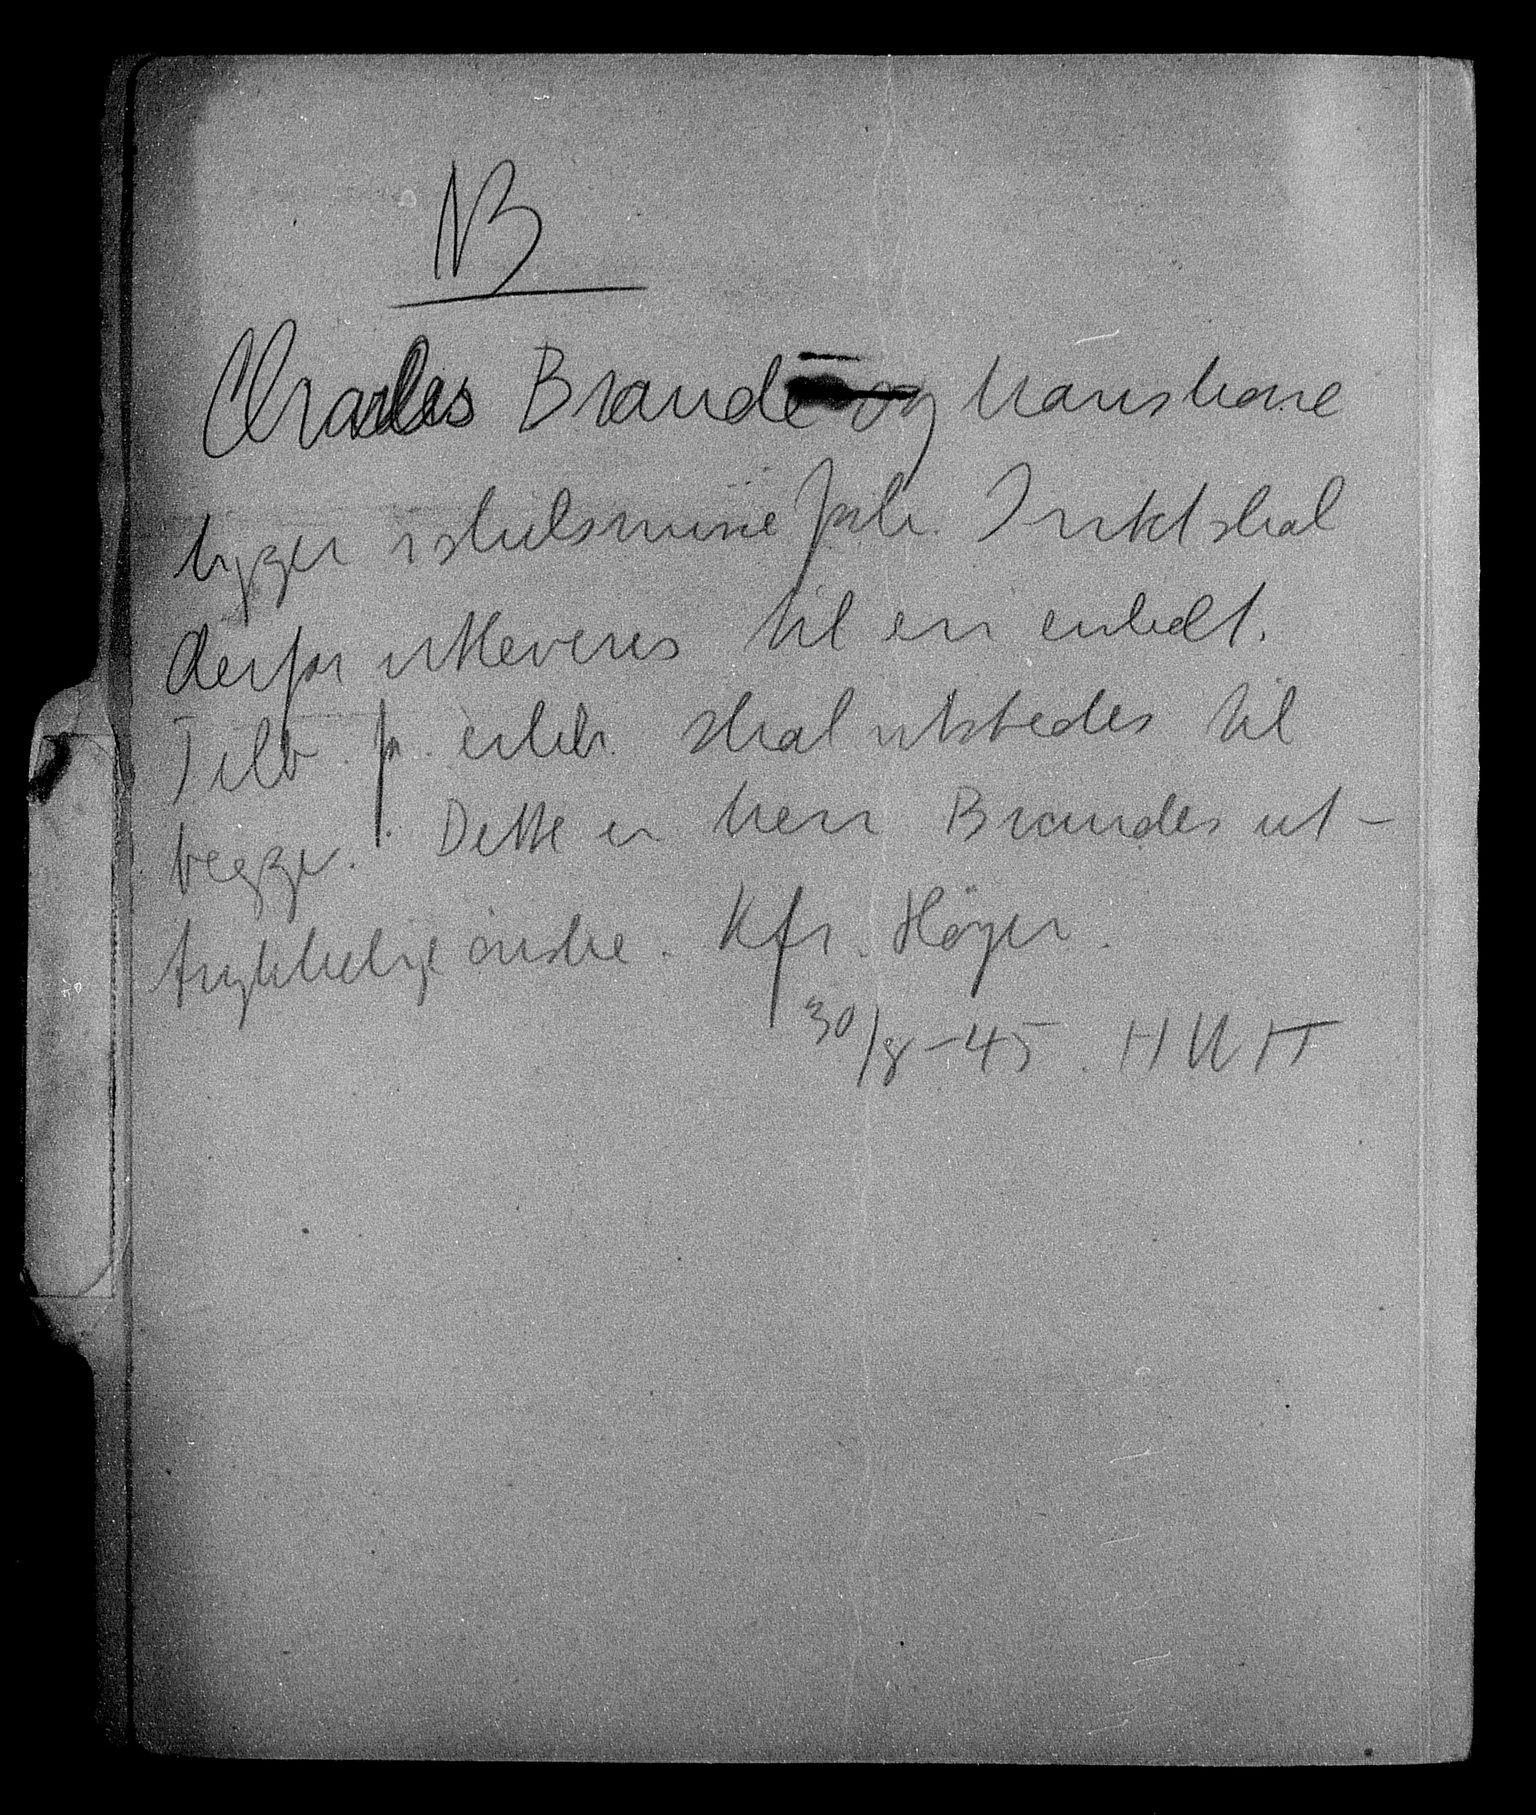 NB
Charles Brande og hans kone
ligger i skilsmisse sak. Intet skal
derfor utleveres til en enkelt.
Tilb. p. erkl. skal utstedes til
begge. Dette er herr Brandes ut-
trykkelige ønske. Kfr. Höyer.
30/8-45. HWH